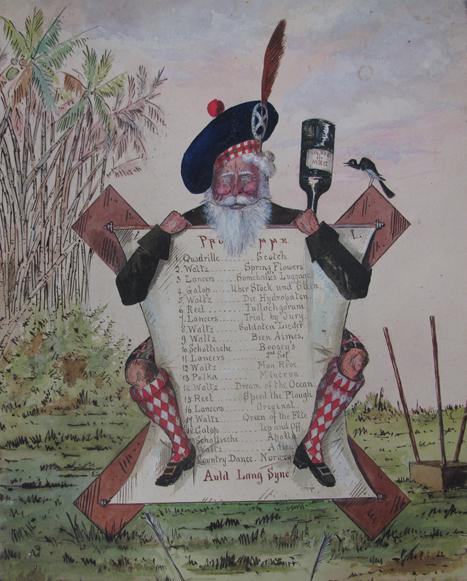 1. Quadrille ..... Scotch
2. Waltz ....... Spring Flowers
3. Lancers .... Somebody's Luggage
4. Galop ..... Uber Stock und Stein
5. Waltz ..... Die Hydropaten
6. Reel ..... Tullochgorum
7. Lancers ..... Trial by Jury
8. Waltz ..... Soldaten Lieder
9. Waltz ...... Bien Aimes,
10. Schottische ... Boosey's
11. Lancers ..... 2nd Set
12. Waltz ..... Mon Rêve
13. Polka ..... Minerva
14. Waltz ... Dream of the Ocean
15. Reel ... Speed the Plough
16. Lancers ..... Original
17. Waltz .... Queen of the Fête
Galop ..... Up and Off
Schottische ....
Waltz
Country Dance
Auld Lang Syne